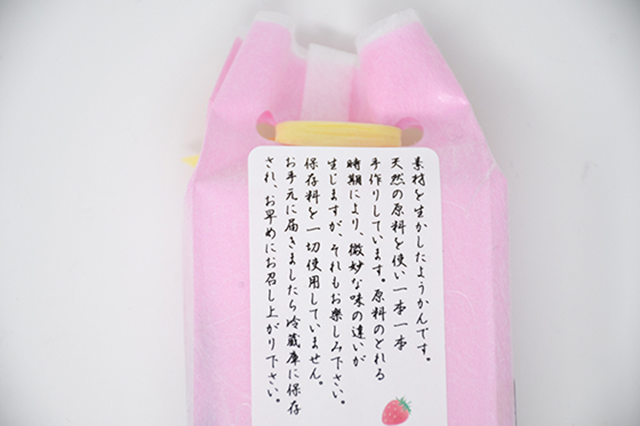 素材を生かしたようかんです。
天然の原料を使い一本一本
手作りしています。原料のとれる
時期により、微妙な味の違いが
生じますが、それもお楽しみ下さい。
保存料を一切使用していません。
お手元に届きましたら冷蔵庫に保存
され、お早めにお召し上がり下さい。